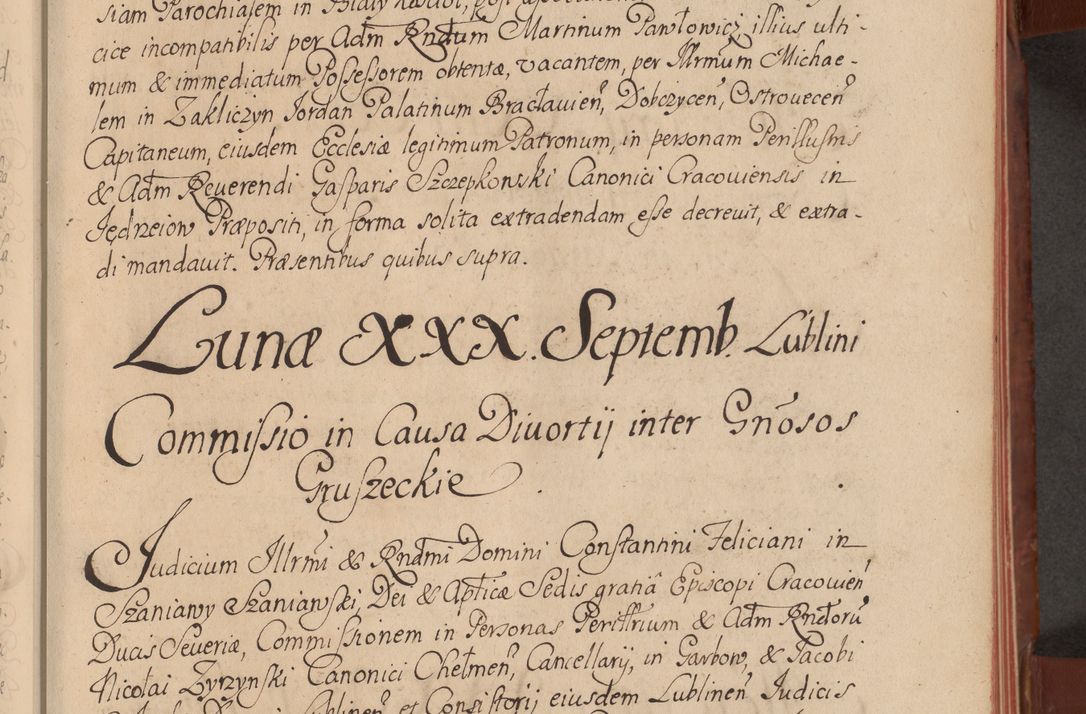 siam Parochialem in
cice incompatibilis per Adm Rndum Martinum Pawłowicz, illius ulti-
mum & immediatum Possessorem obtentæ, vacantem, per Illrmum Michae-
lem in Zakliczyn Jordan Palatinum Bracłavien, Dobczycen, Ostrovecen
Capitaneum, eiusdem Ecclesiæ legitimum Patronum, in personam Perillustris
& Adm Reverendi Gasparis Szczepkowski Canonici Cracoviensis in
Jędrzeiow Præpositi, in forma solita extradendam esse decrevit, & extra-
di mandavit. Præsentibus quibus supra.
Lunæ XXX. Septemb. Lublini
Commissio in Causa Divortij inter Gnosos
Gruszeckie
Judicium Illrmi & Rndmi Domini Constantini Feliciani in
Szaniawy Szaniawski, Dei & Apticæ Sedis gratiâ Episcopi Cracovien
Ducis Severiæ, Commissionem in Personas Perillrium & Adm Rndorũ
Nicolai Zyrzynski Canonici Chełmen, Cancellarij, in Garbow, & Jacobi
et Consistorij eiusdem Lublinen Judicis